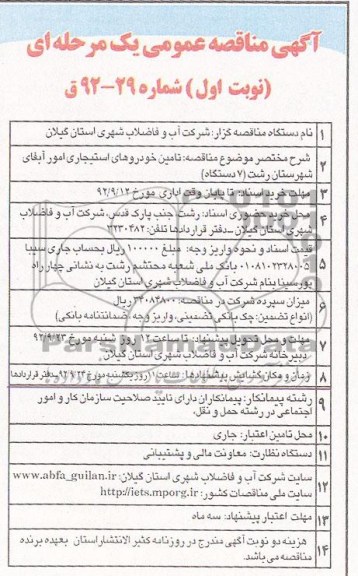 آگهی مناقصه عمومی یک مرحله ای
(نوبت اول) شماره ۲۹-۹۲ ق
۱ نام دستگاه مناقصه گزار: شرکت آب و فاضلاب شهری استان گیلان
۲ شرح مختصر موضوع مناقصه: تامین خودروهای استیجاری امور آبفای
شهرستان رشت (۷ دستگاه)
۳ مهلت خرید اسناد: تا پایان وقت اداری مورخ ۹۲/۹/۱۲
۴ محل خرید حضوری اسناد: رشت جنب پارک قدس، شرکت آب و فاضلاب
شهری استان گیلان _دفتر قراردادها تلفن:
۵ قیمت اسناد و نحوه واریز وجه: مبلغ ۱۰۰۰۰۰ ریال بحساب جاری سیبا
بانک ملی شعبه محتشم رشت به نشانی چهار راه
پورسینا بنام شرکت آب و فاضلاب شهری استان گیلان
۶ میزان سپرده شرکت در مناقصه: ریال
(انواع تضمین: چک بانکی تضمینی، واریز وجه، ضمانتنامه بانکی)
۷ مهلت و محل تحویل پیشنهاد: تا ساعت ۱۲ روز شنبه مورخ ۹۲/۹/۲۳
دبیرخانه شرکت آب و فاضلاب شهری استان گیلان
۸ زمان و مکان گشایش پیشنهادها: ساعت ۱۱ روز یکشنبه مورخ ۹۲/۹/۲۴ _دفتر قراردادها
۹ رشته پیمانکار: پیمانکاران دارای تایید صلاحیت سازمان کار و امور
اجتماعی در رشته حمل و نقل،
۱۰ محل تامین اعتبار: جاری
۱۱ دستگاه نظارت: معاونت مالی و پشتیبانی
۱۲ سایت شرکت آب و فاضلاب شهری استان گیلان: www.abfa_guilan.ir
سایت ملی مناقصات کشور: http://iets.mporg.ir
۱۳ مهلت اعتبار پیشنهاد: سه ماه
۱۴ هزینه دو نوبت آگهی مندرج در روزنامه کثیر الانتشار استان بعهده برنده
مناقصه می باشد.